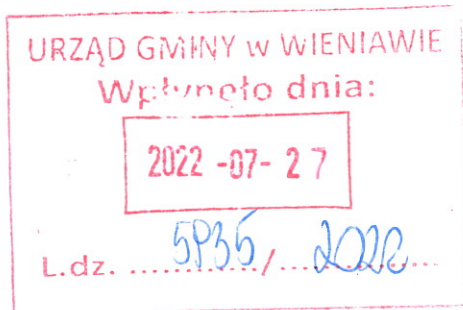 URZĄD GMINY w WIENIAWIE
Wpłynęło dnia:
2022 -07- 27
L.dz. ............/.................2022